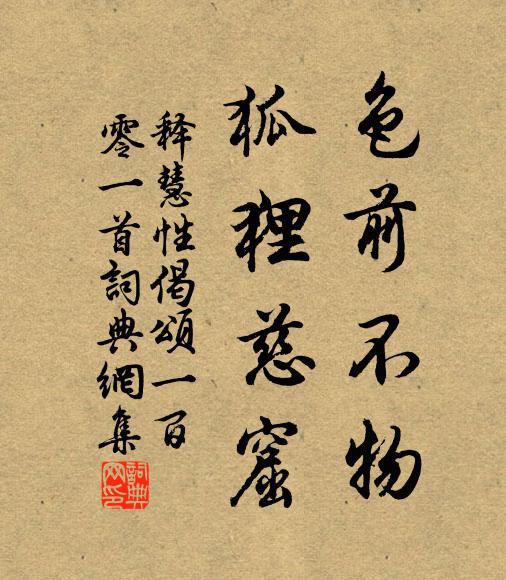 色前不物
狐狸慈窟
释慧性偈頌一百
零一首詞典網集
詞典
网印